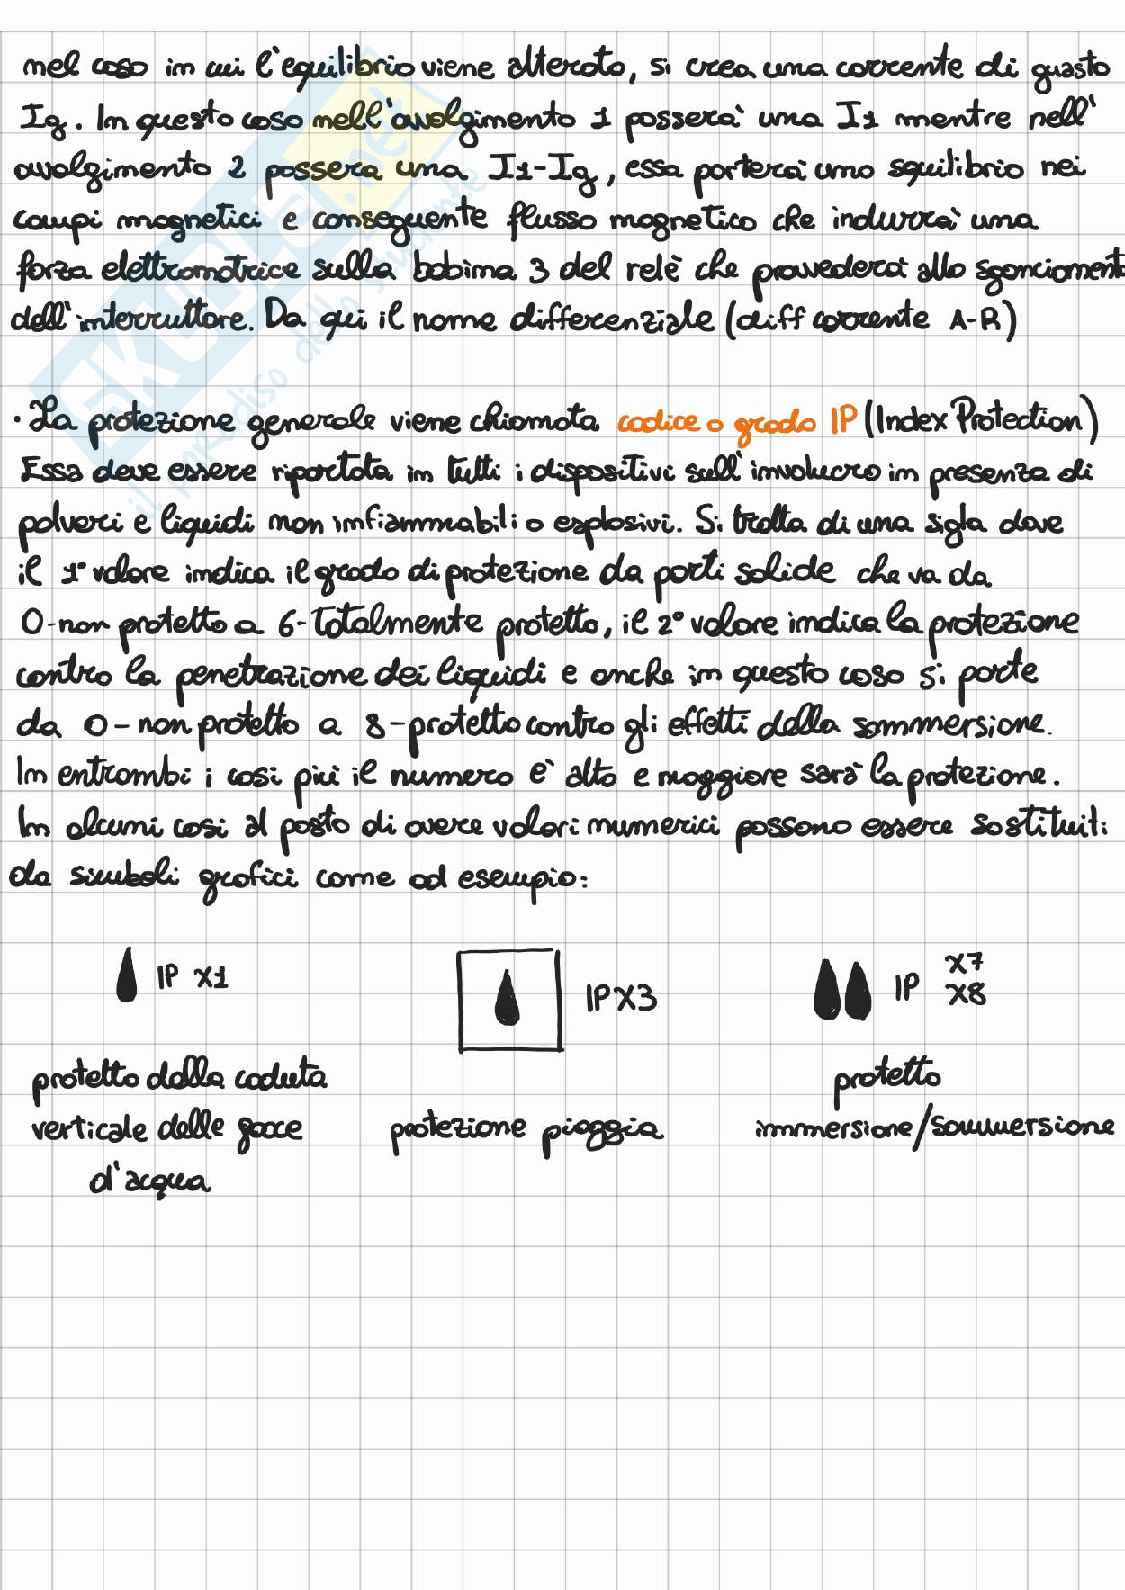 nel caso in cui l'equilibrio viene alterato, si crea una corrente di guasto
Ig. In questo caso nell'avvolgimento 1 passerà una I1 mentre nell'
avvolgimento 2 passerà una I1-Ig, essa porterà uno squilibrio nei
campi magnetici e conseguente flusso magnetico che indurrà una
forza elettromotrice sulla bobina 3 del relè che provvederà allo sganciament
dell'interruttore. Da qui il nome differenziale (diff corrente A-R)
· La protezione generale viene chiamata codice o grado IP (Index Protection)
Essa deve essere riportata in tutti i dispositivi sull'involucro in presenza di
polveri e liquidi non infiammabili o esplosivi. Si tratta di una sigla dove
il 1° valore indica il grado di protezione da parti solide che va da
0-non protetto a 6-Totalmente protetto, il 2° valore indica la protezione
contro la penetrazione dei liquidi e anche in questo caso si parte
da 0-non protetto a 8-protetto contro gli effetti della sommersione.
In entrambi i casi più il numero è alto e maggiore sarà la protezione.
In alcuni casi al posto di avere valori numerici possono essere sostituiti
da simboli grafici come ad esempio:
IP X1
IPX3
IP X7
X8
protetto dalla caduta
verticale delle gocce
d'acqua
protezione pioggia
protetto
immersione/sommersione
SKUOLA.net
il paradiso dello studente